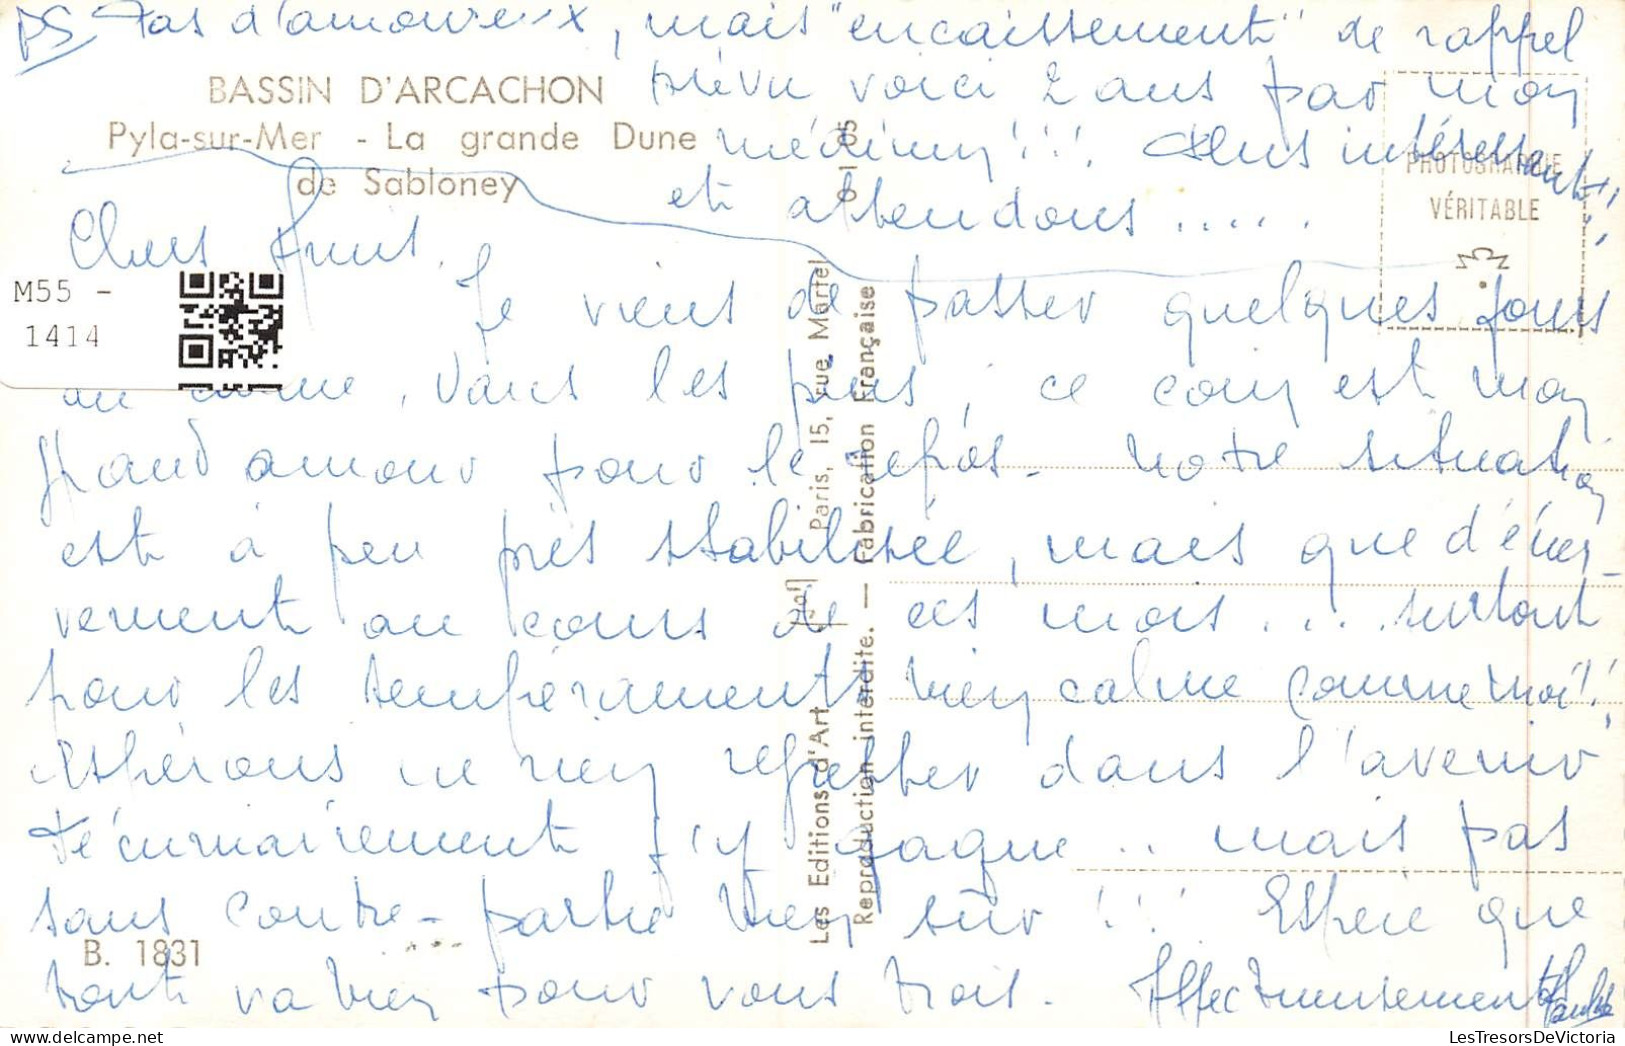 PS Pas d'amoureux, mais "encaissement" de rappel
prévu voici 2 ans par mon
médium !!! Plus intéressant !!
et attendons .....
BASSIN D'ARCACHON
Pyla-sur-Mer - La grande Dune
de Sabloney
PHOTOGRAPHIE
VÉRITABLE
M55 -
1414
Chers Amis.
Je viens de passer quelques jours
au calme, dans les pins, ce coin est mon
grand amour pour le repos. Notre situation
est à peu près stabilisée, mais que d'éner-
vement au cours de ces mois ... surtout
pour les tempéraments bien calme comme moi !!
espérons ne rien regretter dans l'avenir
Pécuniairement j'y gagne .. mais pas
sans contre-partie bien sûr !!! Espère que
tout va bien pour vous trois. Affectueusement
Les Editions d'Art Paris, 15, rue Martel
Reproduction interdite. — Fabrication Française
B. 1831
LesTresorsDeVictoria